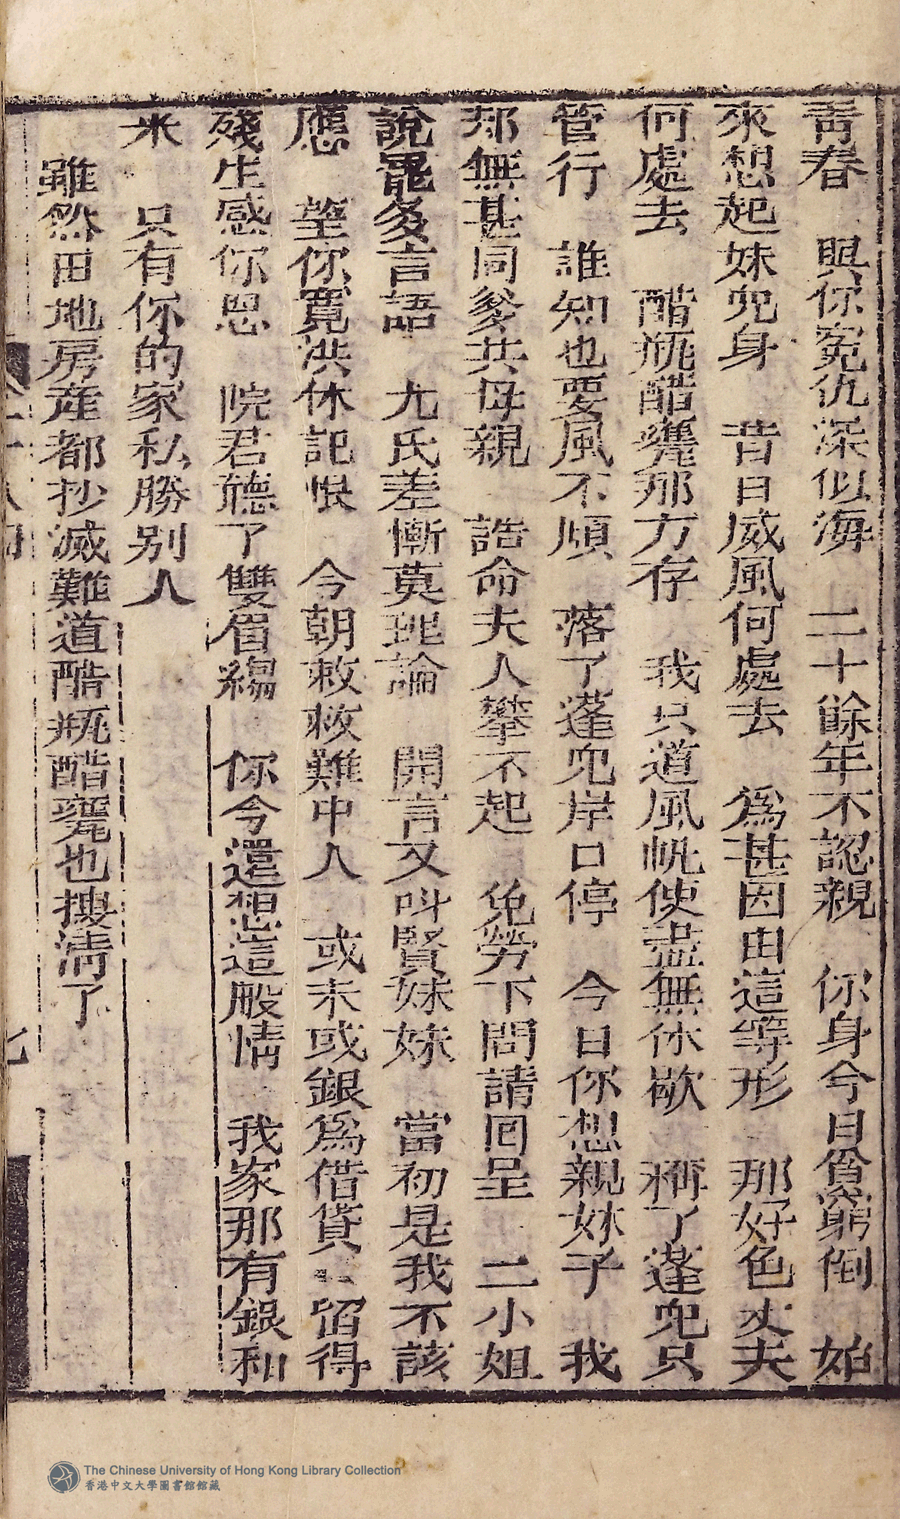 青春　與你冤仇深似海　二十餘年不認親　你身今日貧窮倒　始
來想起妹兜身　昔日威風何處去　為甚因由這等形　那好色丈夫
何處去　醋瓶醋甕那方存　我只道風帆使盡無休歇　稱了蓬兜只
管行　誰知也要風不順　落了蓬兜岸口停　今日你想親妹子　我
却無甚同爹共母親　誥命夫人攀不起　免勞下問請回呈　二小姐
說罷多言語　尤氏差慚莫理論　開言又叫賢妹妹　當初是我不該
應　望你寬洪休記恨　今朝救救難中人　或未或銀為借貸　留得
殘生感你恩　院君聽了雙眉縐　你今還想這般情　我家那有銀和
米　只有你的家私勝別人
雖然田地房產都抄滅難道醋瓶醋甕也摟清了
The Chinese University of Hong Kong Library Collection
香港中文大學圖書館館藏